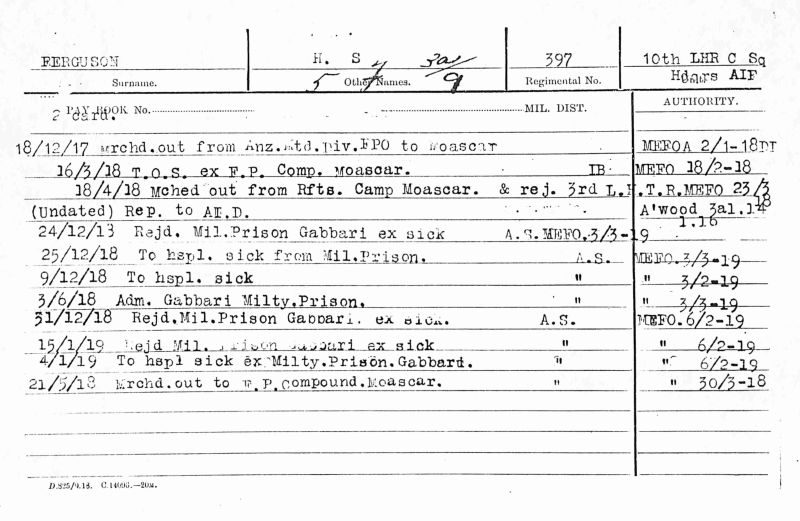 FERGUSON H. S 397 10th LHR C Sq
Surname. 5 Other Names. 9 Regimental No. Hdqrs AIF
PAY BOOK No. MIL. DIST. AUTHORITY.
2 card.
18/12/17 Mrchd.out from Anz.Mtd.Div.FPO to Moascar MEFOA 2/1-18DT
16/3/18 T.O.S. ex F.P. Comp. Moascar. IB MEFO 18/2-18
18/4/18 Mched out from Rfts. Camp Moascar. & rej. 3rd L.H.T.R.MEFO 23/3
18
(Undated) Rep. to AE.D. A'wood 3a1.14
1.16
24/12/18 Rejd. Mil.Prison Gabbari ex sick A.S.MEFO.3/3-19
25/12/18 To hspl. sick from Mil.Prison. A.S. MEFO.3/3-19
9/12/18 To hspl. sick " " 3/2-19
3/6/18 Adm. Gabbari Milty.Prison. " " 3/3-19
31/12/18 Rejd.Mil.Prison Gabbari. ex sick. A.S. MEFO.6/2-19
15/1/19 Rejd Mil. Prison Gabbari ex sick " " 6/2-19
4/1/19 To hspl sick ex Milty.Prison.Gabbard. " " 6/2-19
21/5/18 Mrchd.out to F.P.Compound.Moascar. " " 30/3-18
D.825/9.18. C.14693.—20M.